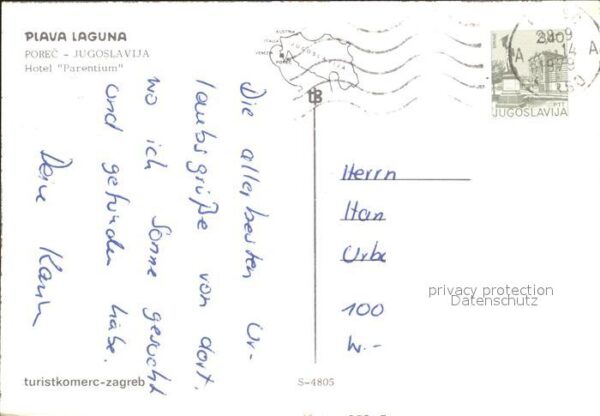 PLAVA LAGUNA
POREČ – JUGOSLAVIJA
Hotel "Parentium"
Die allerbesten Ur-
laubsgrüße von dort,
wo ich Sonne gesucht
und gefunden habe.
Deine Karin
JUGOSLAVIJA
tB
2.80
JUGOSLAVIJA
Herrn
100
privacy protection
Datenschutz
turistkomerc-zagreb
S-4805